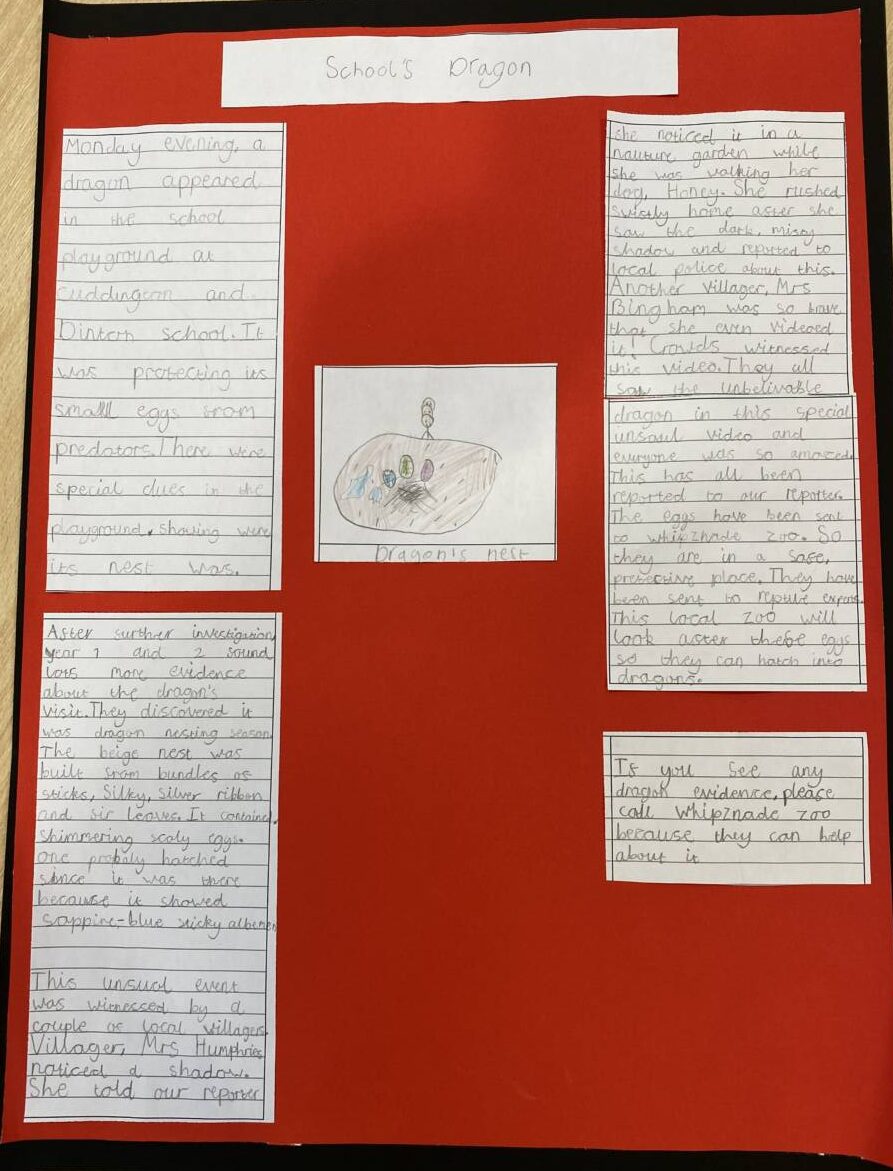 School's Dragon
Monday evening, a
dragon appeared
in the school
playground at
Cuddington and
Dinton school. It
was protecting its
small eggs from
predators. There were
special clues in the
playground, showing were
its nest was.
After further investigation,
year 1 and 2 found
lots more evidence
about the dragon's
visit. They discovered it
was dragon nesting season.
The beige nest was
built from bundles of
sticks, silky, silver ribbon
and fir leaves. It contained
shimmering scaly eggs.
one probaly hatched
since it was there
because it showed
sappire-blue sticky albemen
This unsual event
was witnessed by a
couple of local villagers.
Villager, Mrs Humphries
noticed a shadow.
She told our reporter
Dragon's nest
she noticed it in a
nauture garden while
she was walking her
dog, Honey. She rushed
swiftly home after she
saw the dark, misty
shadow and reported to
local police about this.
Another villager, Mrs
Bingham was so brave
that she even videoed
it! Crowds witnessed
this video. They all
saw the unbelivable
dragon in this special
unsaul video and
everyone was so amazed.
This has all been
reported to our reporter.
The eggs have been sent
to whipznade zoo. So
they are in a safe,
protective place. They have
been sent to reptile experts.
This local zoo will
look after these eggs
so they can hatch into
dragons.
If you see any
dragon evidence, please
call whipznade zoo
because they can help
about it